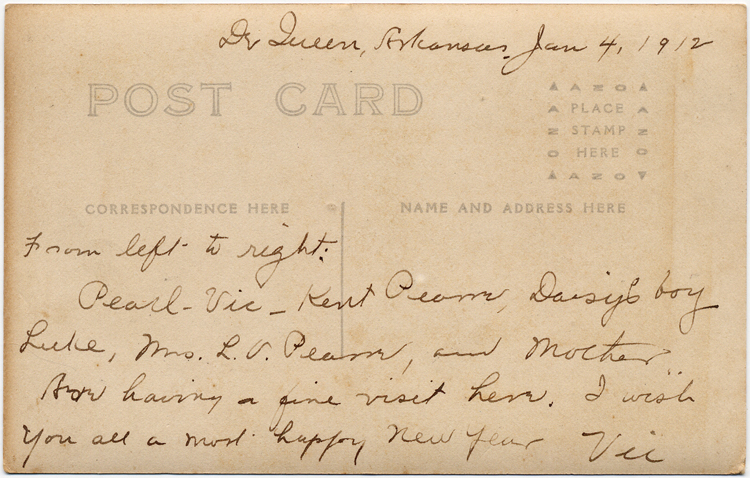 De Queen, Arkansas. Jan 4, 1912
POST CARD
AZO
PLACE
STAMP
HERE
AZO
CORRESPONDENCE HERE
NAME AND ADDRESS HERE
From left to right:
Pearl - Vic - Kent Pearre, Daisy's boy
Luke, Mrs. L. V. Pearre, and Mother
having a fine visit here. I wish
you all a most happy New Year Vic